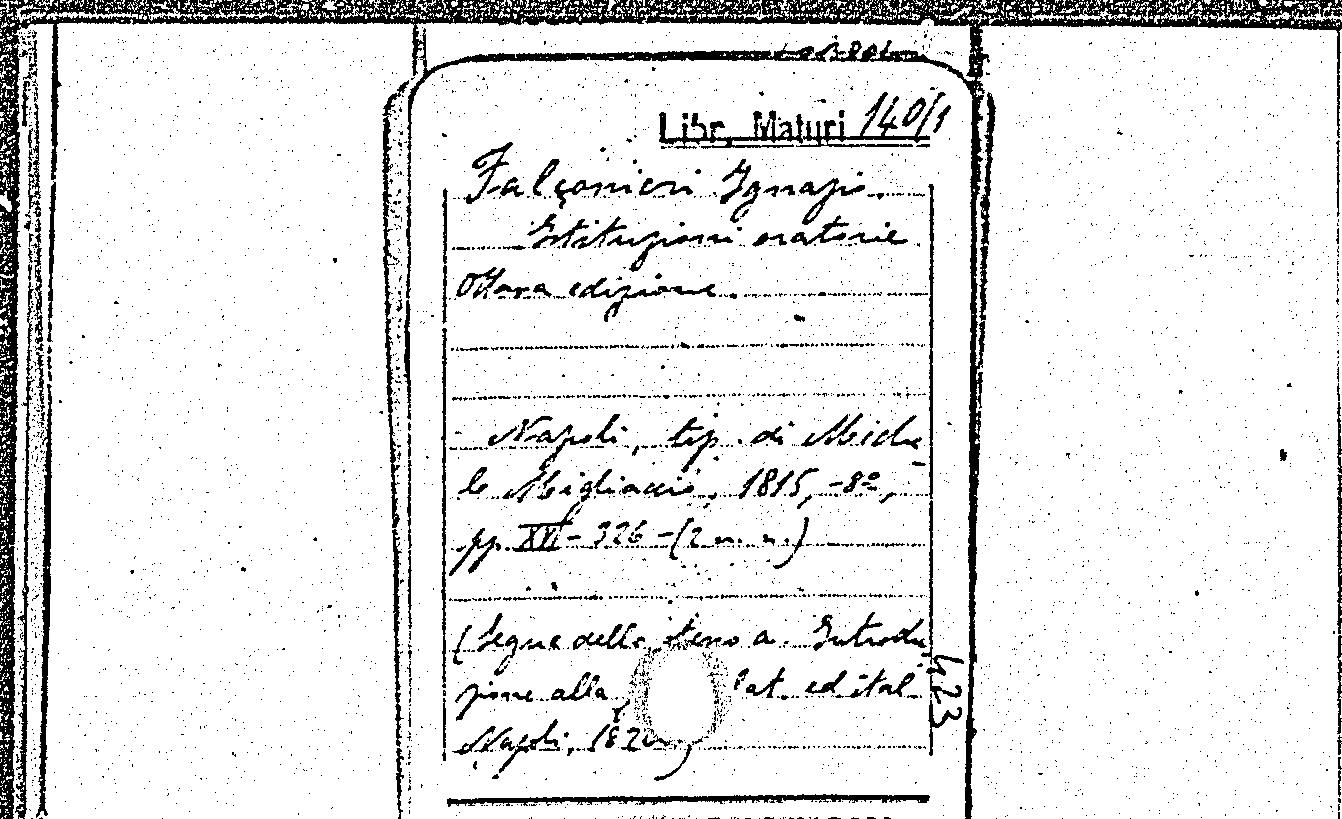 Libr. Maturi 140/1
Falconieri Ignazio.
Istituzioni oratorie
Ottava edizione.
Napoli, tip. di Miche-
le Migliaccio, 1815, -8º,
pp. XVI - 326 - (2 n. n.)
(Segue dello stesso a. Introdu-
zione alla lat. ed ital.
Napoli, 182
423